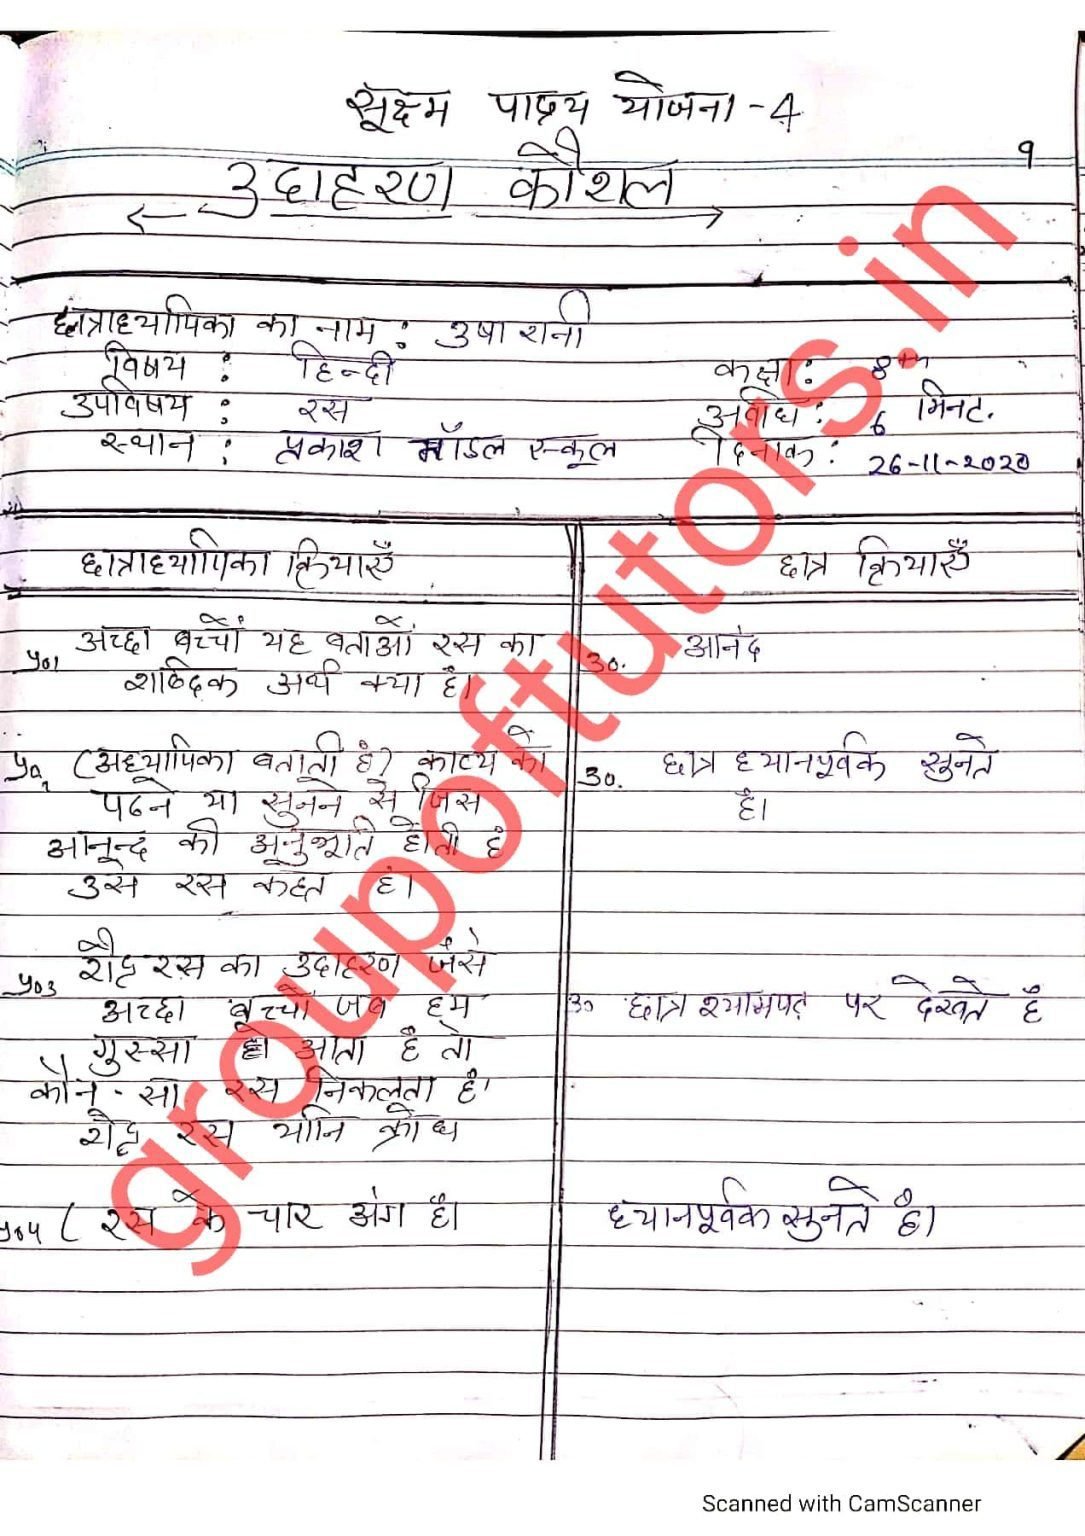 सूक्ष्म पाठ्य योजना - 4
9
उदाहरण कौशल
छात्राध्यापिका का नाम : उषा रानी
विषय : हिन्दी कक्षा : 8th
उपविषय : रस अवधि : 6 मिनट.
स्थान : प्रकाश मॉडल स्कूल दिनाक : 26-11-2020
छात्राध्यापिका क्रियाएँ छात्र क्रियाएँ
प्र01 अच्छा बच्चों यह बताओं रस का उ0. आनंद
शाब्दिक अर्थ क्या है।
प्र02 (अध्यापिका बताती है) काव्य को उ0. छात्र ध्यानपूर्वक सुनते
पढने या सुनने से जिस है।
आनन्द की अनुभूति होती है
उसे रस कहते है।
रौद्र रस का उदाहरण जैसे
प्र03 अच्छा बच्चों जब हम उ0 छात्र श्यामपट पर देखते है
गुस्सा हो आता है तो
कौन - सा रस निकलता है।
रौद्र रस यानि क्रोध
प्र04 ( रस के चार अंग है। ध्यानपूर्वक सुनते है।
groupoftutors.in
Scanned with CamScanner